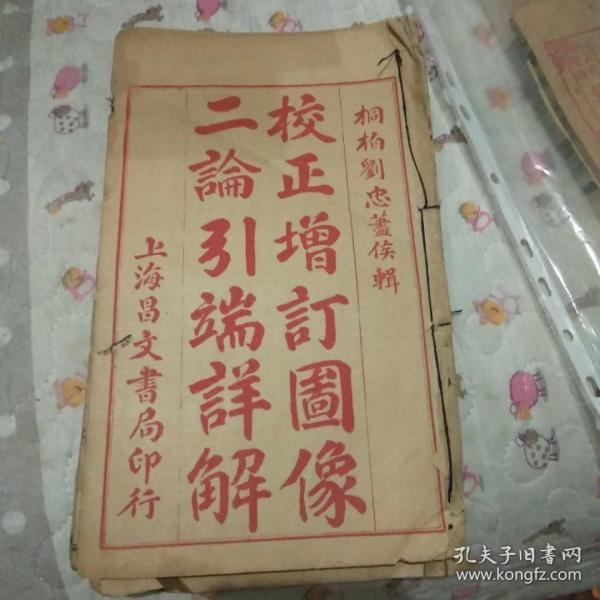 桐柏劉忠藎侯輯
校正增訂圖像
二論引端詳解
上海昌文書局印行
孔夫子旧書网
www.kongfz.com